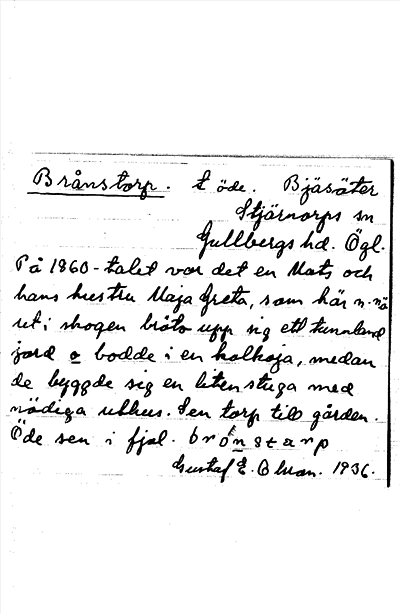 Brånstorp. t öde. Bjäsäter
Stjärnorps sn
Gullbergs hd. Ögl.
På 1860-talet var det en Mats och
hans hustru Maja Greta, som här n. nä
ut i skogen bröto upp sig ett tunnland
jord o bodde i en kolkoja, medan
de byggde sig en liten stuga med
nödiga uthus. Sen torp till gården.
Öde sen i fjol. brónstarp
Gustaf E. Olsson. 1936.